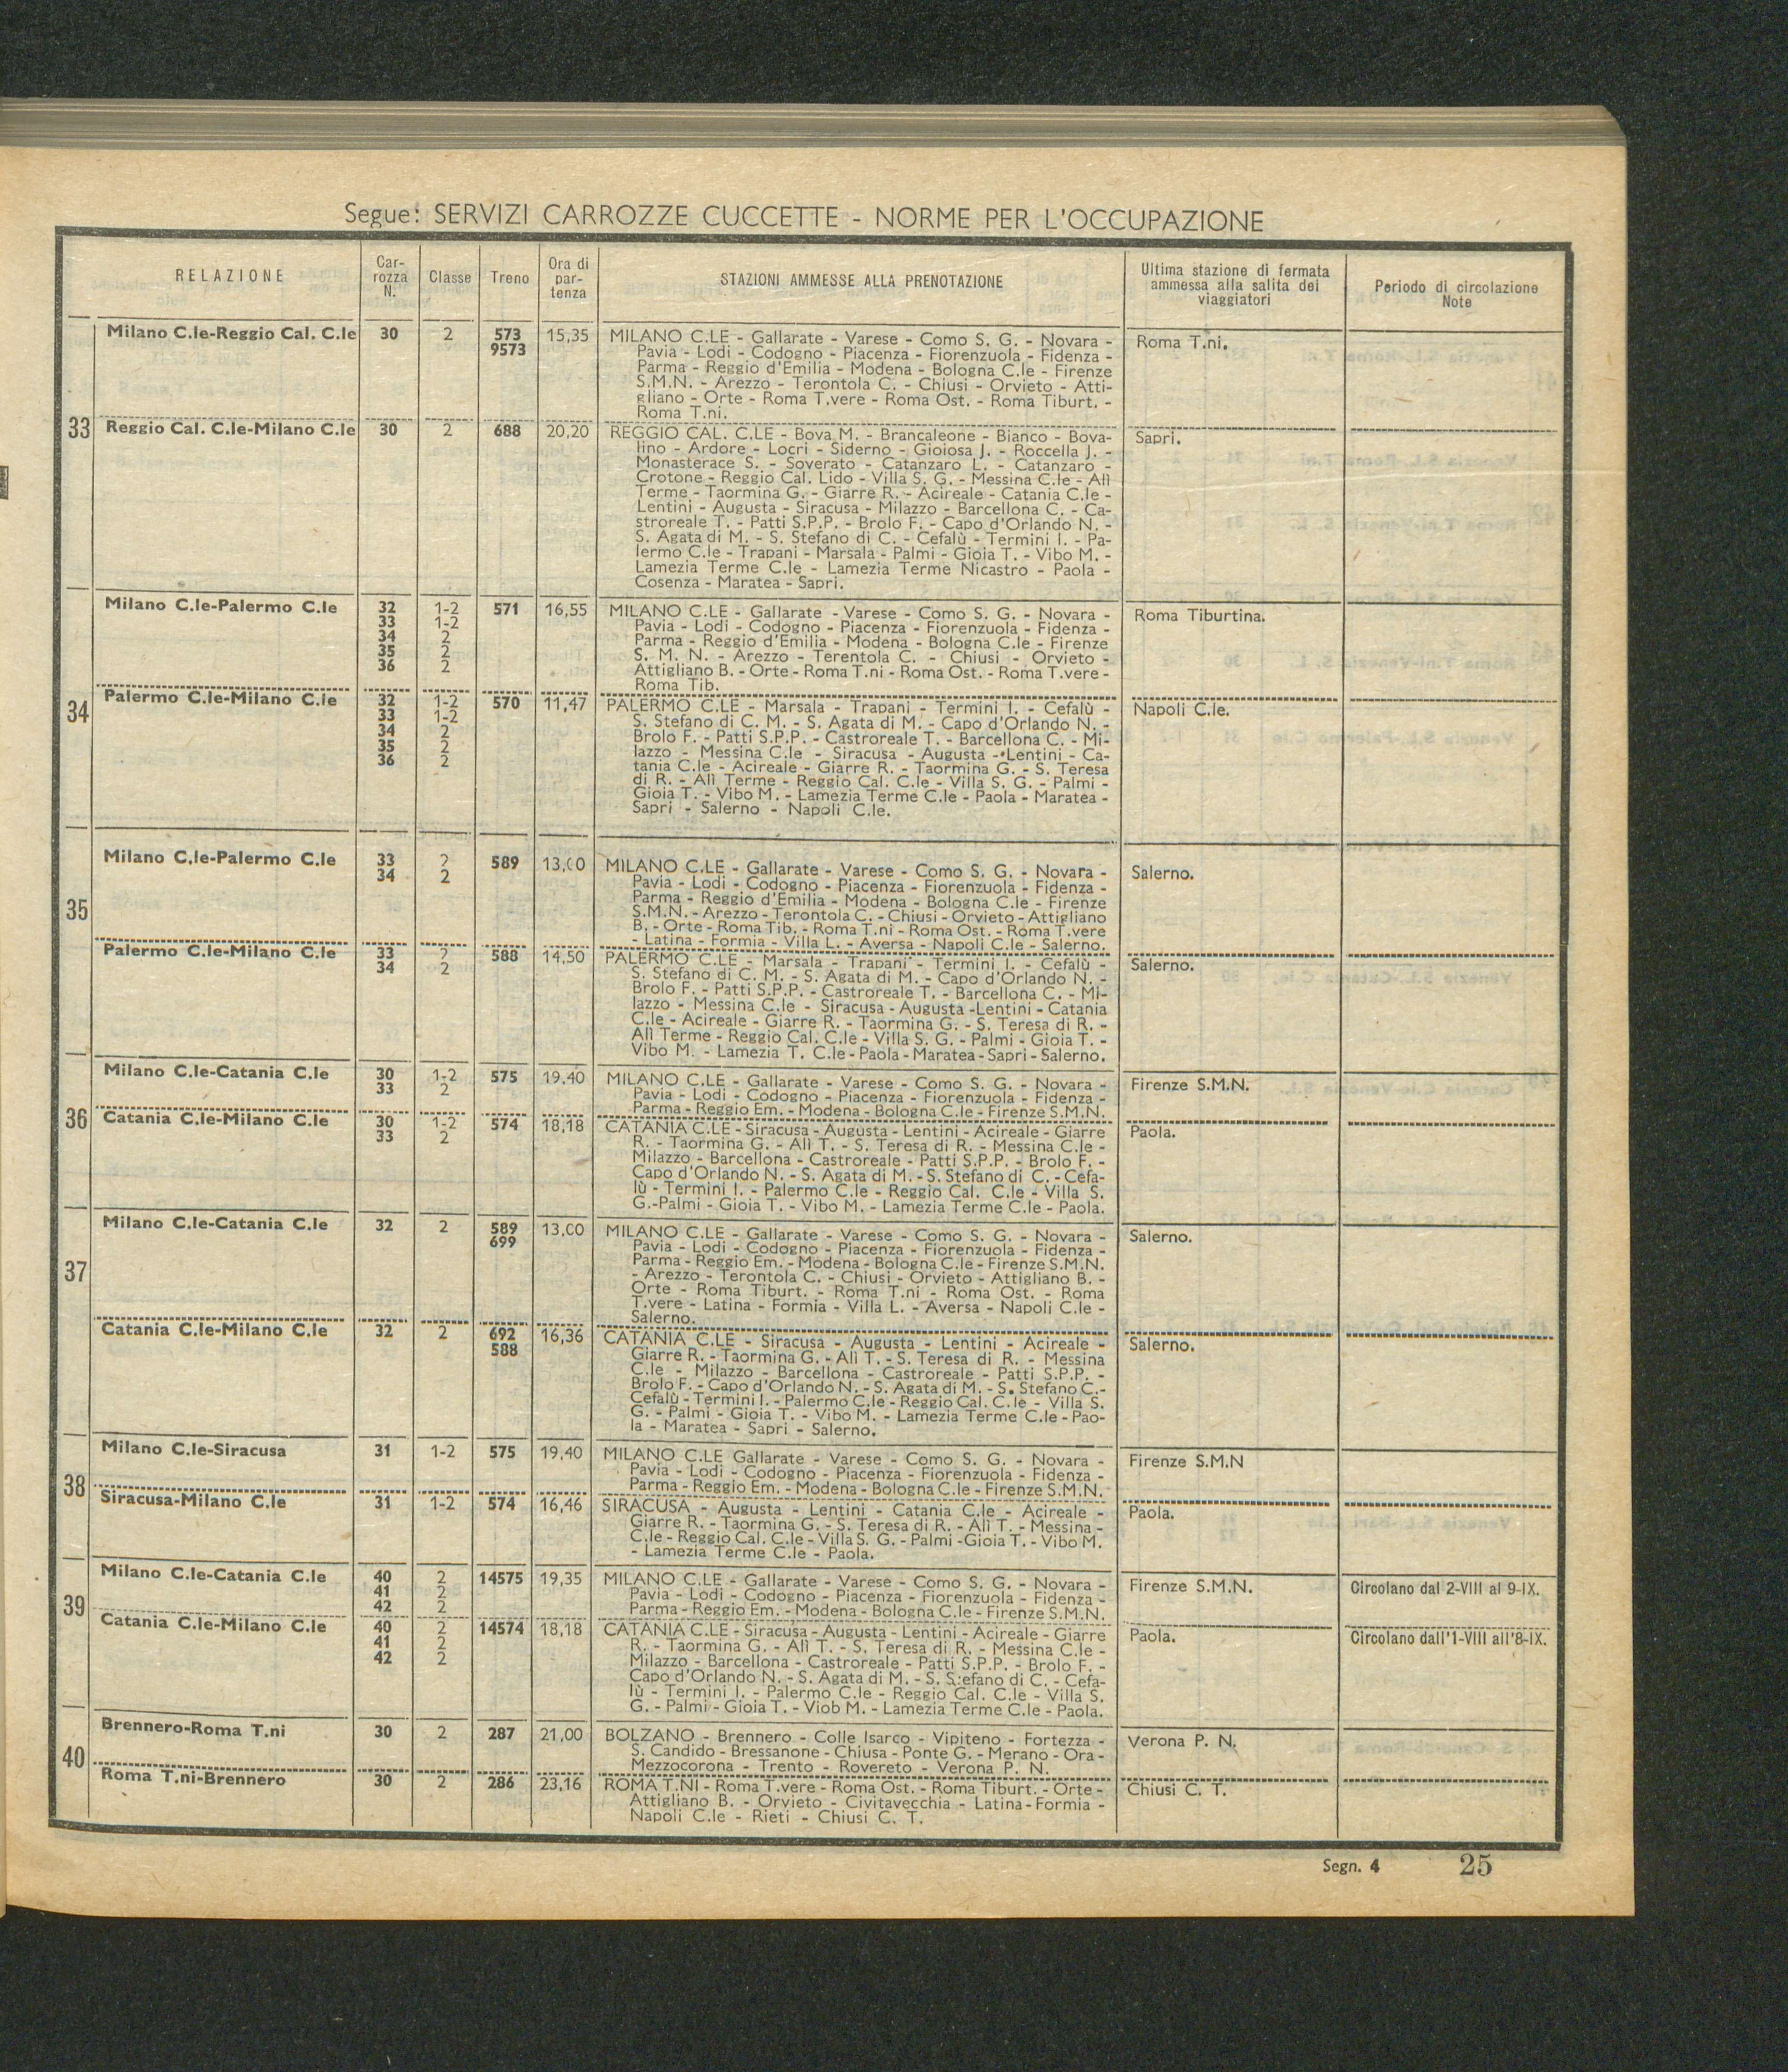 Segue: SERVIZI CARROZZE CUCCETTE - NORME PER L'OCCUPAZIONE
RELAZIONE
Car-
rozza
N.
Classe
Treno
Ora di
par-
tenza
STAZIONI AMMESSE ALLA PRENOTAZIONE
Ultima stazione di fermata
ammessa alla salita dei
viaggiatori
Periodo di circolazione
Note
33
Milano C.le-Reggio Cal. C.le
30
2
573
9573
15,35
MILANO C.LE - Gallarate - Varese - Como S. G. - Novara -
Pavia - Lodi - Codogno - Piacenza - Fiorenzuola - Fidenza -
Parma - Reggio d'Emilia - Modena - Bologna C.le - Firenze
S.M.N. - Arezzo - Terontola C. - Chiusi - Orvieto - Atti-
gliano - Orte - Roma T.vere - Roma Ost. - Roma Tiburt. -
Roma T.ni.
Roma T.ni.
Reggio Cal. C.le-Milano C.le
30
2
688
20,20
REGGIO CAL. C.LE - Bova M. - Brancaleone - Bianco - Bova-
lino - Ardore - Locri - Siderno - Gioiosa J. - Roccella J. -
Monasterace S. - Soverato - Catanzaro L. - Catanzaro -
Crotone - Reggio Cal. Lido - Villa S. G. - Messina C.le - Alì
Terme - Taormina G. - Giarre R. - Acireale - Catania C.le -
Lentini - Augusta - Siracusa - Milazzo - Barcellona C. - Ca-
stroreale T. - Patti S.P.P. - Brolo F. - Capo d'Orlando N. -
S. Agata di M. - S. Stefano di C. - Cefalù - Termini I. - Pa-
lermo C.le - Trapani - Marsala - Palmi - Gioia T. - Vibo M. -
Lamezia Terme C.le - Lamezia Terme Nicastro - Paola -
Cosenza - Maratea - Sapri.
Sapri.
34
Milano C.le-Palermo C.le
32
33
34
35
36
1-2
1-2
2
2
2
571
16,55
MILANO C.LE - Gallarate - Varese - Como S. G. - Novara -
Pavia - Lodi - Codogno - Piacenza - Fiorenzuola - Fidenza -
Parma - Reggio d'Emilia - Modena - Bologna C.le - Firenze
S. M. N. - Arezzo - Terentola C. - Chiusi - Orvieto -
Attigliano B. - Orte - Roma T.ni - Roma Ost. - Roma T.vere -
Roma Tib.
Roma Tiburtina.
Palermo C.le-Milano C.le
32
33
34
35
36
1-2
1-2
2
2
2
570
11,47
PALERMO C.LE - Marsala - Trapani - Termini I. - Cefalù -
S. Stefano di C. M. - S. Agata di M. - Capo d'Orlando N. -
Brolo F. - Patti S.P.P. - Castroreale T. - Barcellona C. - Mi-
lazzo - Messina C.le - Siracusa - Augusta - Lentini - Ca-
tania C.le - Acireale - Giarre R. - Taormina G. - S. Teresa
di R. - Alì Terme - Reggio Cal. C.le - Villa S. G. - Palmi -
Gioia T. - Vibo M. - Lamezia Terme C.le - Paola - Maratea -
Sapri - Salerno - Napoli C.le.
Napoli C.le.
35
Milano C.le-Palermo C.le
33
34
2
2
589
13,00
MILANO C.LE - Gallarate - Varese - Como S. G. - Novara -
Pavia - Lodi - Codogno - Piacenza - Fiorenzuola - Fidenza -
Parma - Reggio d'Emilia - Modena - Bologna C.le - Firenze
S.M.N. - Arezzo - Terontola C. - Chiusi - Orvieto - Attigliano
B. - Orte - Roma Tib. - Roma T.ni - Roma Ost. - Roma T.vere
- Latina - Formia - Villa L. - Aversa - Napoli C.le - Salerno.
Salerno.
Palermo C.le-Milano C.le
33
34
2
2
588
14,50
PALERMO C.LE - Marsala - Trapani - Termini I. - Cefalù -
S. Stefano di C. M. - S. Agata di M. - Capo d'Orlando N. -
Brolo F. - Patti S.P.P. - Castroreale T. - Barcellona C. - Mi-
lazzo - Messina C.le - Siracusa - Augusta - Lentini - Catania
C.le - Acireale - Giarre R. - Taormina G. - S. Teresa di R. -
Alì Terme - Reggio Cal. C.le - Villa S. G. - Palmi - Gioia T. -
Vibo M. - Lamezia T. C.le - Paola - Maratea - Sapri - Salerno.
Salerno.
36
Milano C.le-Catania C.le
30
33
1-2
2
575
19,40
MILANO C.LE - Gallarate - Varese - Como S. G. - Novara -
Pavia - Lodi - Codogno - Piacenza - Fiorenzuola - Fidenza -
Parma - Reggio Em. - Modena - Bologna C.le - Firenze S.M.N.
Firenze S.M.N.
Catania C.le-Milano C.le
30
33
1-2
2
574
18,18
CATANIA C.LE - Siracusa - Augusta - Lentini - Acireale - Giarre
R. - Taormina G. - Alì T. - S. Teresa di R. - Messina C.le -
Milazzo - Barcellona - Castroreale - Patti S.P.P. - Brolo F. -
Capo d'Orlando N. - S. Agata di M. - S. Stefano di C. - Cefa-
lù - Termini I. - Palermo C.le - Reggio Cal. C.le - Villa S.
G.-Palmi - Gioia T. - Vibo M. - Lamezia Terme C.le - Paola.
Paola.
37
Milano C.le-Catania C.le
32
2
589
699
13,00
MILANO C.LE - Gallarate - Varese - Como S. G. - Novara -
Pavia - Lodi - Codogno - Piacenza - Fiorenzuola - Fidenza -
Parma - Reggio Em. - Modena - Bologna C.le - Firenze S.M.N.
- Arezzo - Terontola C. - Chiusi - Orvieto - Attigliano B. -
Orte - Roma Tiburt. - Roma T.ni - Roma Ost. - Roma
T.vere - Latina - Formia - Villa L. - Aversa - Napoli C.le -
Salerno.
Salerno.
Catania C.le-Milano C.le
32
2
692
588
16,36
CATANIA C.LE - Siracusa - Augusta - Lentini - Acireale -
Giarre R. - Taormina G. - Alì T. - S. Teresa di R. - Messina
C.le - Milazzo - Barcellona - Castroreale - Patti S.P.P. -
Brolo F. - Capo d'Orlando N. - S. Agata di M. - S. Stefano C.-
Cefalù - Termini I. - Palermo C.le - Reggio Cal. C.le - Villa S.
G. - Palmi - Gioia T. - Vibo M. - Lamezia Terme C.le - Pao-
la - Maratea - Sapri - Salerno.
Salerno.
38
Milano C.le-Siracusa
31
1-2
575
19,40
MILANO C.LE Gallarate - Varese - Como S. G. - Novara -
Pavia - Lodi - Codogno - Piacenza - Fiorenzuola - Fidenza -
Parma - Reggio Em. - Modena - Bologna C.le - Firenze S.M.N.
Firenze S.M.N
Siracusa-Milano C.le
31
1-2
574
16,46
SIRACUSA - Augusta - Lentini - Catania C.le - Acireale -
Giarre R. - Taormina G. - S. Teresa di R. - Alì T. - Messina -
C.le - Reggio Cal. C.le - Villa S. G. - Palmi -Gioia T. - Vibo M.
- Lamezia Terme C.le - Paola.
Paola.
39
Milano C.le-Catania C.le
40
41
42
2
2
2
14575
19,35
MILANO C.LE - Gallarate - Varese - Como S. G. - Novara -
Pavia - Lodi - Codogno - Piacenza - Fiorenzuola - Fidenza -
Parma - Reggio Em. - Modena - Bologna C.le - Firenze S.M.N.
Firenze S.M.N.
Circolano dal 2-VIII al 9-IX.
Catania C.le-Milano C.le
40
41
42
2
2
2
14574
18,18
CATANIA C.LE - Siracusa - Augusta - Lentini - Acireale - Giarre
R. - Taormina G. - Alì T. - S. Teresa di R. - Messina C.le -
Milazzo - Barcellona - Castroreale - Patti S.P.P. - Brolo F. -
Capo d'Orlando N. - S. Agata di M. - S. Stefano di C. - Cefa-
lù - Termini I. - Palermo C.le - Reggio Cal. C.le - Villa S.
G. - Palmi - Gioia T. - Viob M. - Lamezia Terme C.le - Paola.
Paola.
Circolano dall'1-VIII all'8-IX.
40
Brennero-Roma T.ni
30
2
287
21,00
BOLZANO - Brennero - Colle Isarco - Vipiteno - Fortezza -
S. Candido - Bressanone - Chiusa - Ponte G. - Merano - Ora -
Mezzocorona - Trento - Rovereto - Verona P. N.
Verona P. N.
Roma T.ni-Brennero
30
2
286
23,16
ROMA T.NI - Roma T.vere - Roma Ost. - Roma Tiburt. - Orte -
Attigliano B. - Orvieto - Civitavecchia - Latina - Formia -
Napoli C.le - Rieti - Chiusi C. T.
Chiusi C. T.
Segn. 4
25